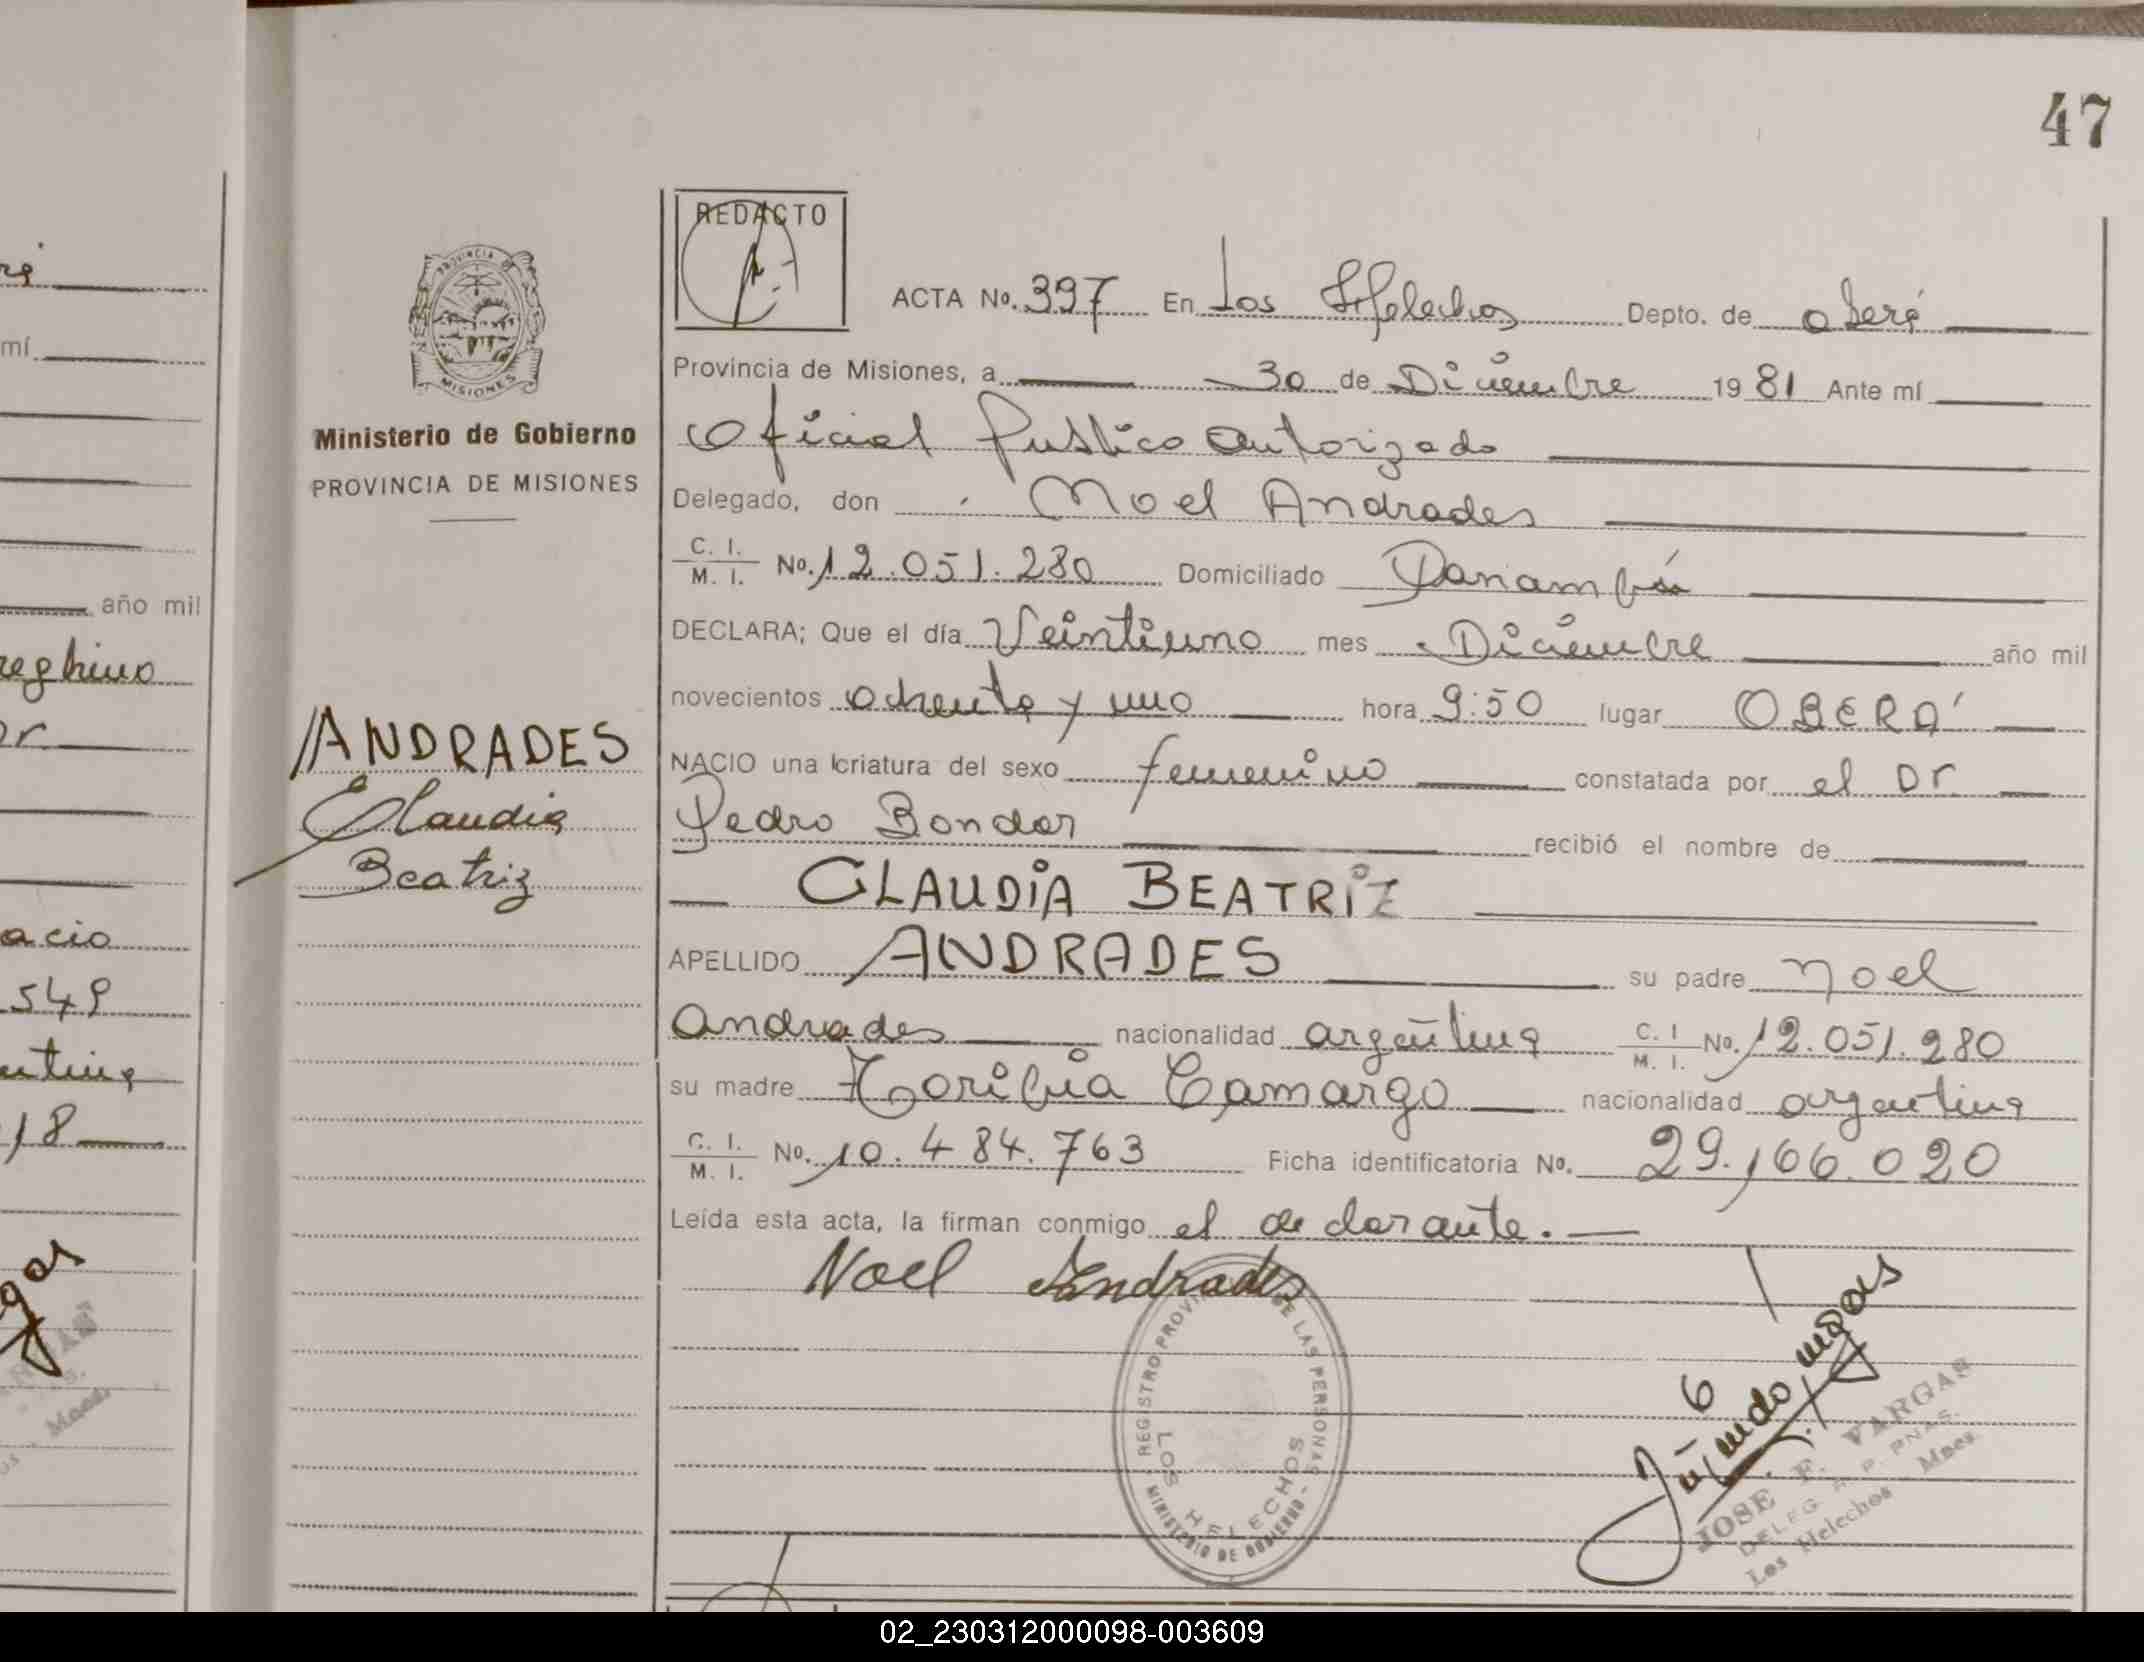 47
REDACTO
ACTA No. 397 En Los Helechos Depto. de oberá
Provincia de Misiones, a 30 de Diciembre 1981 Ante mí
Oficial Publico autorizado
Delegado, don Noel Andrades
C. I. / M. I. No. 12.051.280 Domiciliado Panambí
DECLARA; Que el día Veintiuno mes Diciembre año mil
novecientos ochenta y uno hora 9:50 lugar OBERÁ
NACIO una criatura del sexo femenino constatada por el Dr.
Pedro Bondar recibió el nombre de
CLAUDIA BEATRIZ
APELLIDO ANDRADES su padre Noel
Andrades nacionalidad argentina C. I / M. I. No. 12.051.280
su madre Toribia Camargo nacionalidad argentina
C. I. / M. I. No. 10.484.763 Ficha identificatoria No. 29.166.020
Leída esta acta, la firman conmigo el declarante.
Noel Andrades
PROVINCIA DE
MISIONES
Ministerio de Gobierno
PROVINCIA DE MISIONES
ANDRADES
Claudia
Beatriz
REGISTRO PROVI DE LAS PERSONAS
LOS HELECHOS
MINISTERIO DE GOBIERNO
JOSE F. VARGAS
DELEG. R. P. PNAS.
Los Helechos Mnes.
mí
año mil
acio
549
18
02_230312000098-003609